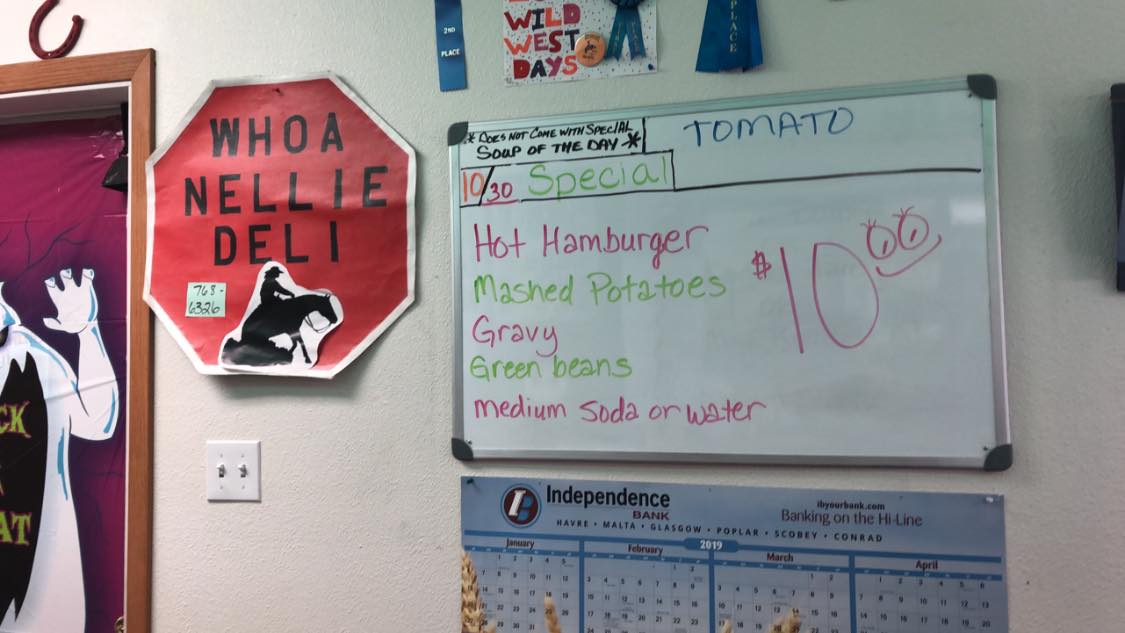 2ND
PLACE
WILD
WEST
DAYS
PLACE
WHOA
NELLIE
DELI
768-
6326
* DOES NOT COME WITH SPECIAL
SOUP OF THE DAY *
TOMATO
10/30 Special
Hot Hamburger
Mashed Potatoes
Gravy
Green beans
medium Soda or water
$10.00
CK
AT
IB
Independence
BANK
HAVRE • MALTA • GLASGOW • POPLAR • SCOBEY • CONRAD
ibyourbank.com
Banking on the Hi-Line
2019
January
February
March
April